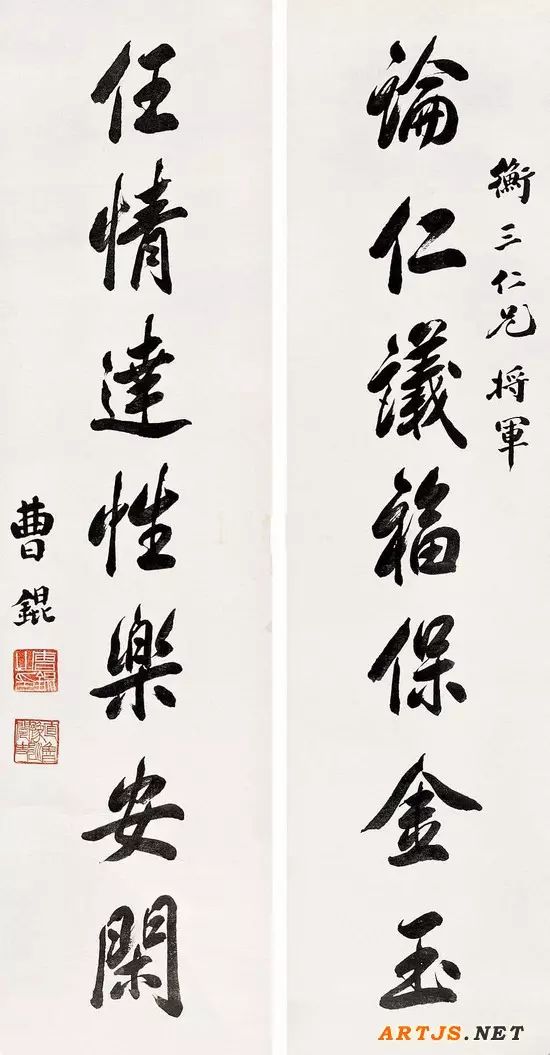 衡三仁兄将軍
論仁議福保金玉
任情達性樂安閑
曹錕
曹錕之印
ARTJS.NET